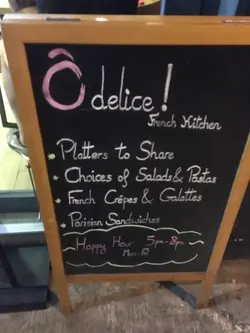 Ô delice!
French Kitchen
• Platters to Share
• Choices of Salads & Pastas
• French Crêpes & Galettes
• Parisian Sandwiches
Happy Hour 5pm-8pm
Mon-Fri